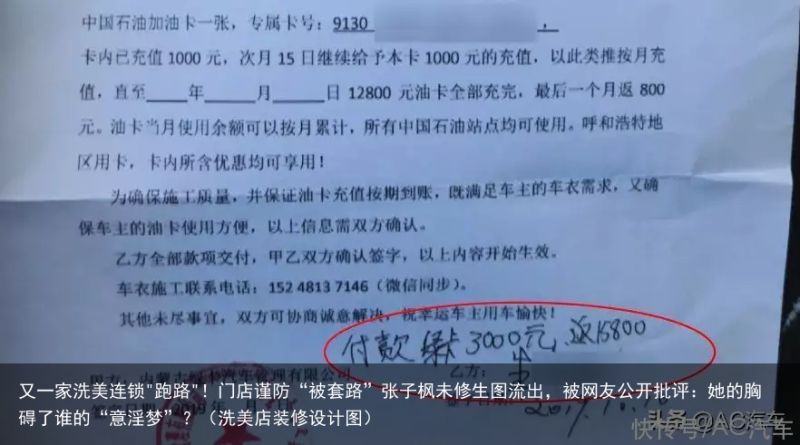 中国石油加油卡一张，专属卡号：9130
卡内已充值1000元，次月15日继续给予本卡1000元的充值，以此类推按月充
值，直至____年____月____日12800元油卡全部充完，最后一个月返800
元。油卡当月使用余额可以按月累计，所有中国石油站点均可使用。呼和浩特地
区用卡，卡内所含优惠均可享用！
为确保施工质量，并保证油卡充值按期到账，既满足车主的车衣需求，又确
保车主的油卡使用方便，以上信息需双方确认。
乙方全部款项交付，甲乙双方确认签字，以上内容开始生效。
车衣施工联系电话：152 4813 7146（微信同步）。
其他未尽事宜，双方可协商诚意解决，祝幸运车主用车愉快！
付款 3000元，返15800
乙方：
又一家洗美连锁"跑路"！门店谨防“被套路”张子枫未修生图流出，被网友公开批评：她的胸
碍了谁的“意淫梦”？（洗美店装修设计图）
头条@AC汽车
快传号/AC汽车